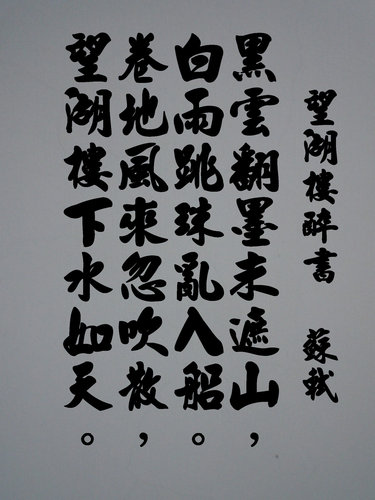 望湖樓醉書 蘇軾
黑雲翻墨未遮山，
白雨跳珠亂入船。
卷地風來忽吹散，
望湖樓下水如天。